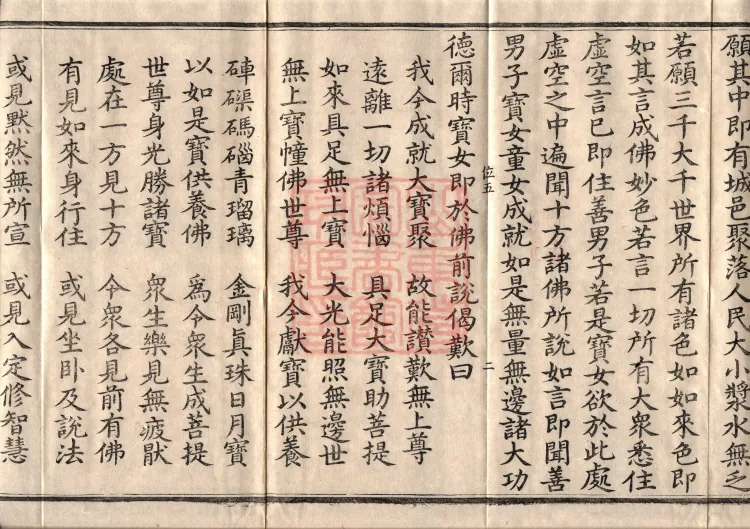 願其中即有城邑聚落人民大小漿水無乏
若願三千大千世界所有諸色如如來色即
如其言成佛妙色若言一切所有大衆悉住
虛空言已即住善男子若是寶女欲於此處
虛空之中遍聞十方諸佛所說如言即聞善
男子寶女童女成就如是無量無邊諸大功
位五 二
德爾時寶女即於佛前說偈歎曰
我今成就大寶聚 故能讃歎無上尊
遠離一切諸煩惱 具足大寶助菩提
如來具足無上寶 大光能照無邊世
無上寶幢佛世尊 我今獻寶以供養
硨磲碼碯青瑠璃 金剛眞珠日月寶
以如是寶供養佛 爲令衆生成菩提
世尊身光勝諸寶 衆生樂見無疲猒
處在一方見十方 令衆各見前有佛
有見如來身行住 或見坐卧及說法
或見默然無所宣 或見入定修智慧